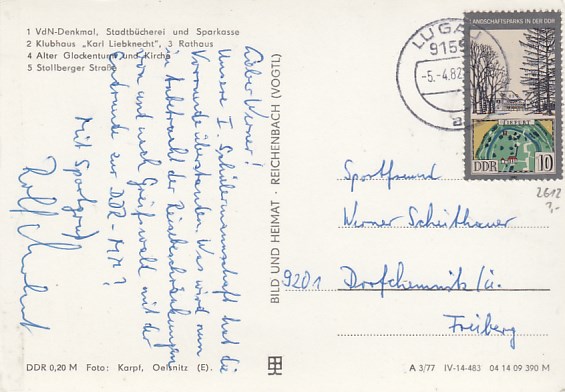 1 VdN-Denkmal, Stadtbücherei und Sparkasse
2 Klubhaus „Karl Liebknecht", 3 Rathaus
4 Alter Glockenturm und Kirche
5 Stollberger Straße
Lieber Werner!
Unsere I. Schülermannschaft hat die
Vorrunde überstanden. Was wird nun
in Anbetracht der Reisebeschränkungen
von und nach Greifswald mit der
Endrunde zur DDR-MM?
Mit Sportgruß
Rolf
BILD UND HEIMAT · REICHENBACH (VOGTL)
LUGAU
9159
-5.-4.82
a
LANDSCHAFTSPARKS IN DER DDR
TIEFURT
DDR 10
2612
3,-
Sportfreund
Werner Scheithauer
9201 Dorfchemnitz/ü.
Freiberg
DDR 0,20 M Foto: Karpf, Oelsnitz (E.)
A 3/77 IV-14-483 04 14 09 390 M